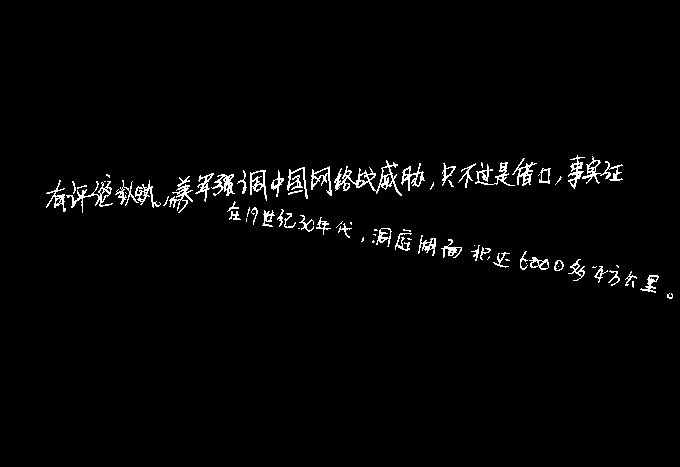 有评论认为，美军强调中国网络战威胁，只不过是借口，事实证
在19世纪30年代，洞庭湖面积达6000多平方公里。